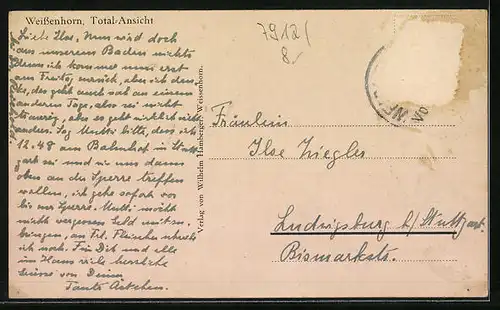 Weißenhorn, Total-Ansicht
7912/
8.-
Liebe Ilse, Nun wird doch
aus unserem Baden nichts
denn ich komme nun erst
am Freitag zurück, aber ich denke
es, das geht auch mal an einem
anderen Tage, also sei nicht
traurig, aber es geht wirklich nicht
anders. Sag Mutti bitte, dass ich
12.48 am Bahnhof in Stutt-
gart sei und wir uns dann
oben an der Sperre treffen
wollen, ich gehe sofort vor
bis zur Sperre. Mutti möcht
nicht vergessen Geld mitzu-
bringen, an Frl. schreib
ich noch. Für Dich und alle
im Haus viele herzliche
Grüsse von Deiner
Tante
Verlag von Wilhelm Hamberger, Weissenhorn.
Fräulein
Ilse Ziegler
Ludwigsburg b/Stuttgart.
Bismarkstr.